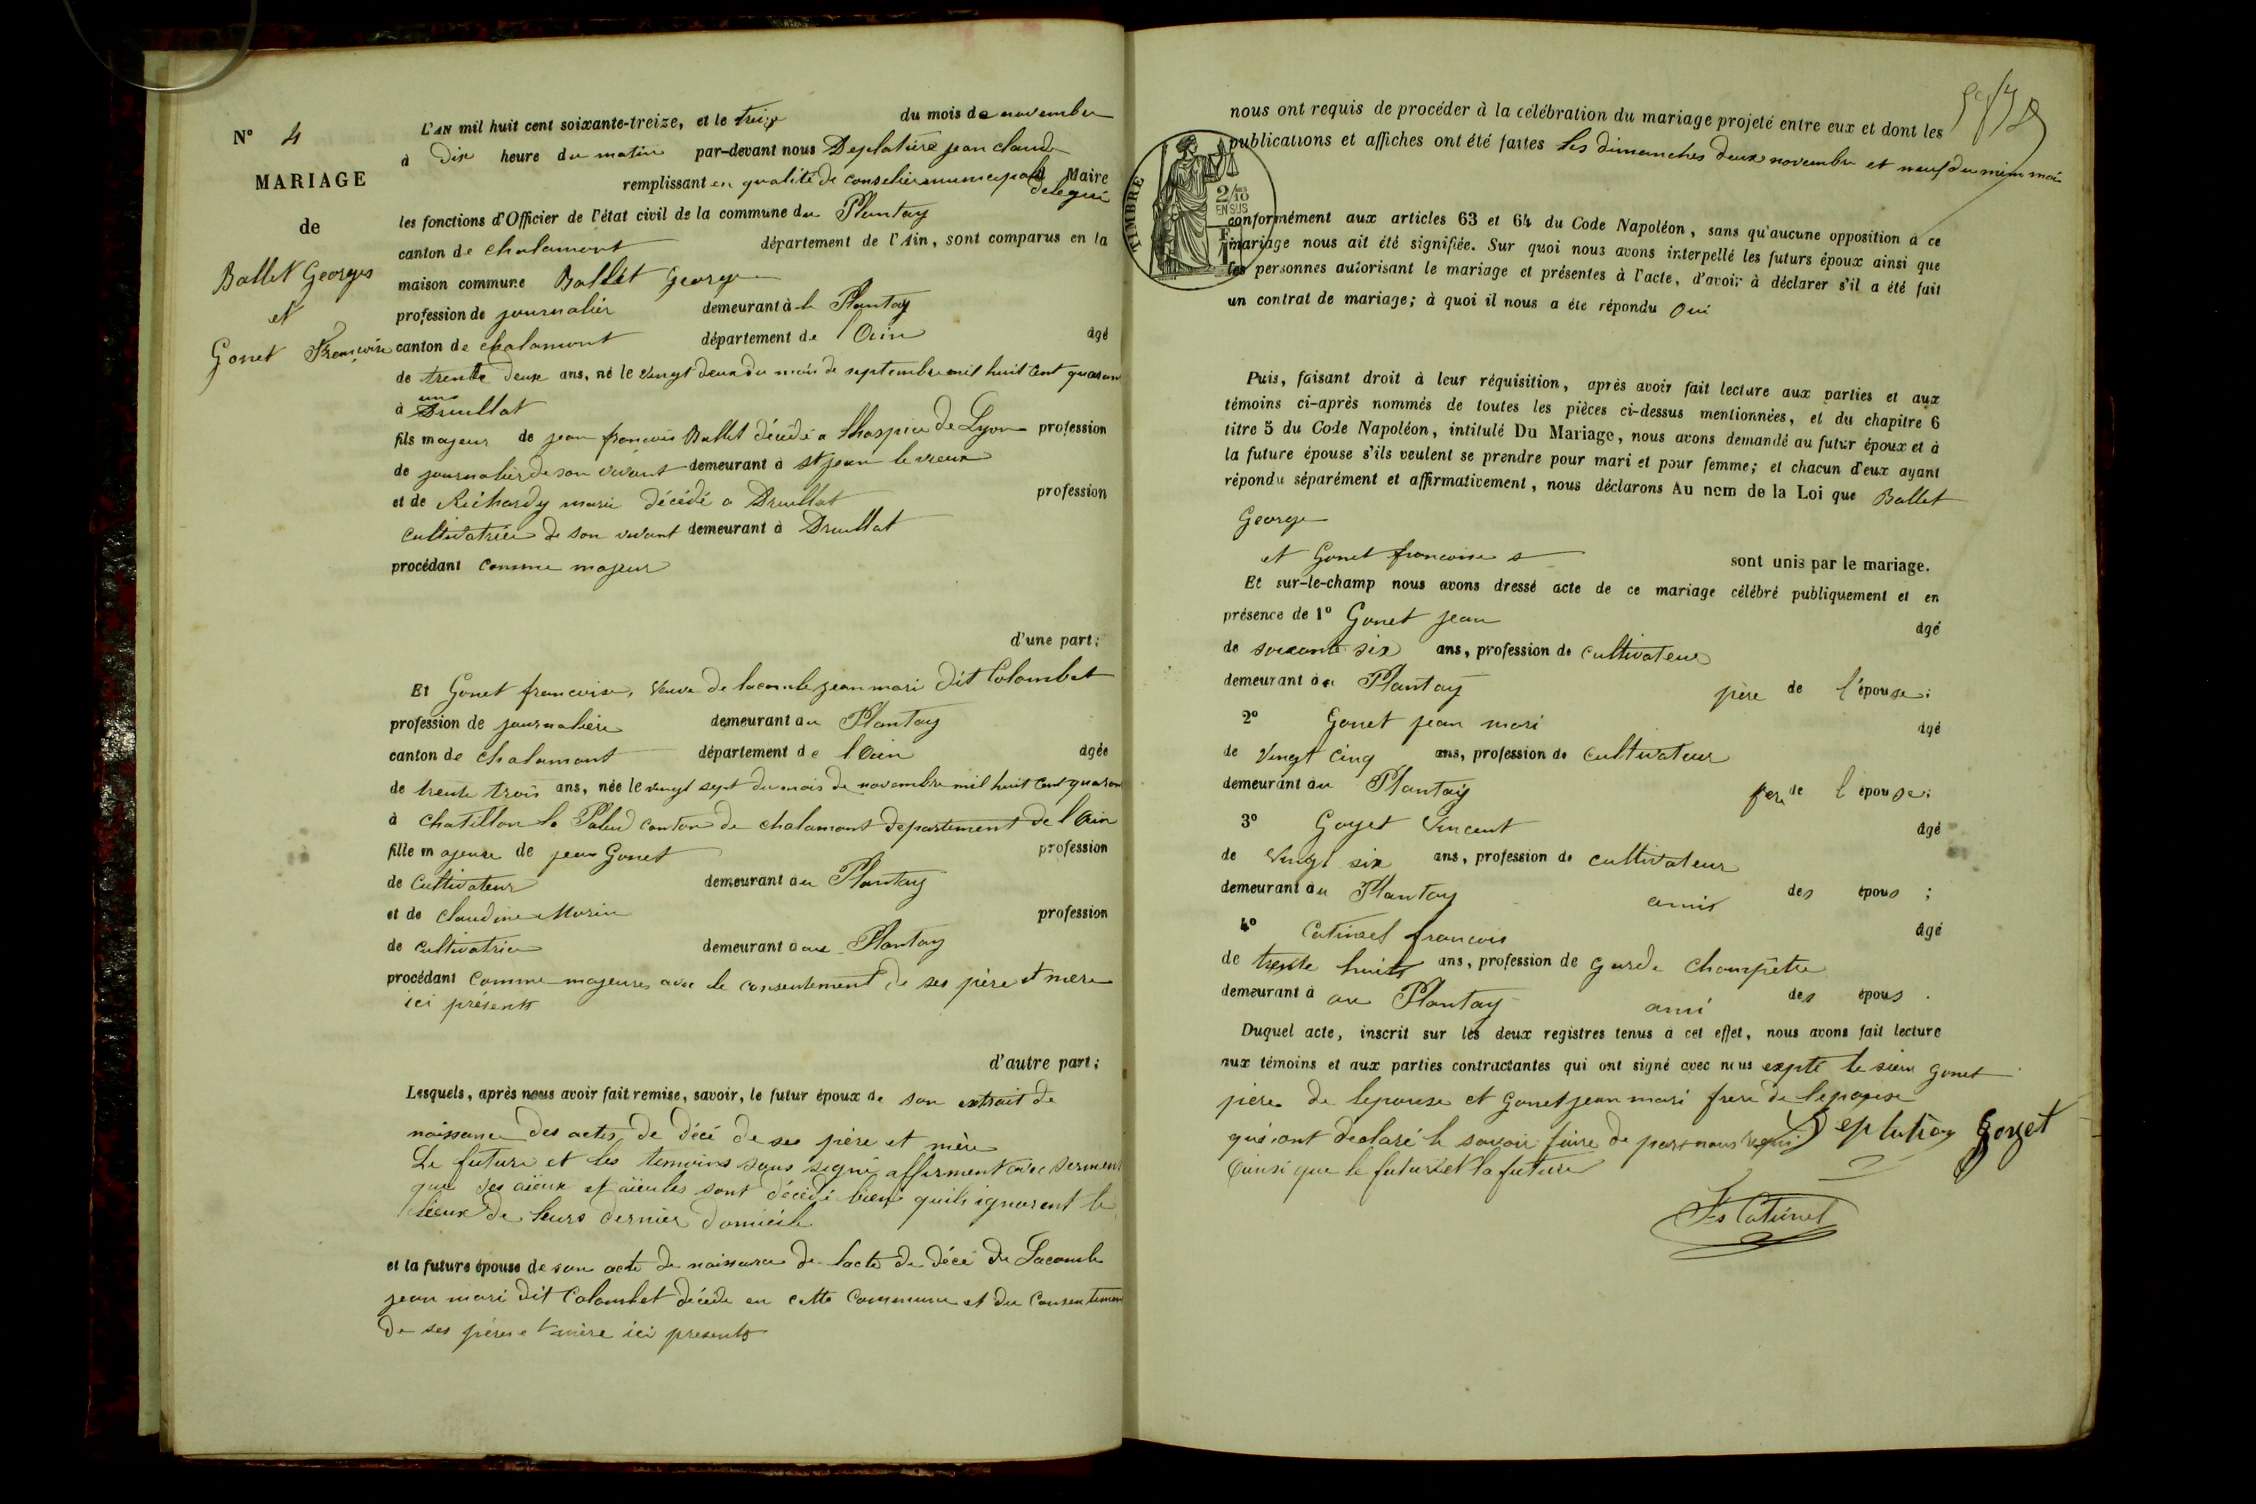 N° 4
MARIAGE
de
Ballet Georges
et
Gonet Francoise
L'AN mil huit cent soixante-treize, et le treize du mois de novembre
à Dix heure du matin par-devant nous Deplatière jean claude
remplissant en qualité de conselier municipal Maire
delegué
les fonctions d'Officier de l'état civil de la commune du Plantay
canton de chalamont département de l'Ain, sont comparus en la
maison commune Ballet George
profession de journalier demeurant à le Plantay
canton de chalamont département de l'Ain âgé
de trente deux ans, né le vingt deux du mois de septembre mil huit cent quarante
un
à Druillat
fils majeur de jean francois Ballet décédé a l'hospice de Lyon profession
de journalier de son vivant demeurant à St jean le vieux
et de Richardy marie décédé a Druillat profession
cultivatrice de son vivant demeurant à Druillat
procédant comme majeur
d'une part;
Et Gonet francoise, veuve de lacombe jean mari dit Colombet
profession de journalière demeurant au Plantay
canton de chalamont département de l'Ain âgée
de trente trois ans, née le vingt sept du mois de novembre mil huit cent quarante
à Chatillon la Palud canton de chalamont departement de l'Ain
fille majeure de jean Gonet profession
de cultivateur demeurant au Plantay
et de claudine Morin profession
de cultivatrice demeurant à au Plantay
procédant comme majeure avec le consentement de ses père et mère
ici présents
d'autre part;
Lesquels, après nous avoir fait remise, savoir, le futur époux de son extrait de
naissance des actes de décé de ses père et mère
Le future et les temoins sous signé affirment avec serment
que ses aïeux et aïeules sont décédé bien quils ignorent le
lieux de leurs dernier domicile
et la future épouse de son acte de naissance de lacte de décé de Lacombe
jean mari dit Colombet décédé en cette commune et du consentement
de ses père et mère ici presents
nous ont requis de procéder à la célébration du mariage projeté entre eux et dont les
publications et affiches ont été faites les dimanches deux novembre et neuf du meme mois
TIMBRE
2/10
EN SUS
conformément aux articles 63 et 64 du Code Napoléon, sans qu'aucune opposition à ce
mariage nous ait été signifiée. Sur quoi nous avons interpellé les futurs époux ainsi que
les personnes autorisant le mariage et présentes à l'acte, d'avoir à déclarer s'il a été fait
un contrat de mariage; à quoi il nous a été répondu Oui
Puis, faisant droit à leur réquisition, après avoir fait lecture aux parties et aux
témoins ci-après nommés de toutes les pièces ci-dessus mentionnées, et du chapitre 6
titre 5 du Code Napoléon, intitulé Du Mariage, nous avons demandé au futur époux et à
la future épouse s'ils veulent se prendre pour mari et pour femme; et chacun d'eux ayant
répondu séparément et affirmativement, nous déclarons Au nom de la Loi que Ballet
George
et Gonet francoise sont unis par le mariage.
Et sur-le-champ nous avons dressé acte de ce mariage célébré publiquement et en
présence de 1° Gonet jean âgé
de soixante six ans, profession de cultivateur
demeurant au Plantay père de l'épouse;
2° Gonet jean mari âgé
de vingt cinq ans, profession de cultivateur
demeurant au Plantay frere de l'épouse;
3° Goyet Vincent âgé
de vingt six ans, profession de cultivateur
demeurant au Plantay amis des épous;
4° Catinel francois âgé
de trente huit ans, profession de garde champêtre
demeurant à au Plantay ami des épous.
Duquel acte, inscrit sur les deux registres tenus à cet effet, nous avons fait lecture
aux témoins et aux parties contractantes qui ont signé avec nous expté le sieur gonet
père de lepouse et gonet jean mari frere de lepouse
qui ont déclaré le savoir faire de par nous requi Deplatière Goyet
ainsi que le future et la future
Fs Catinel